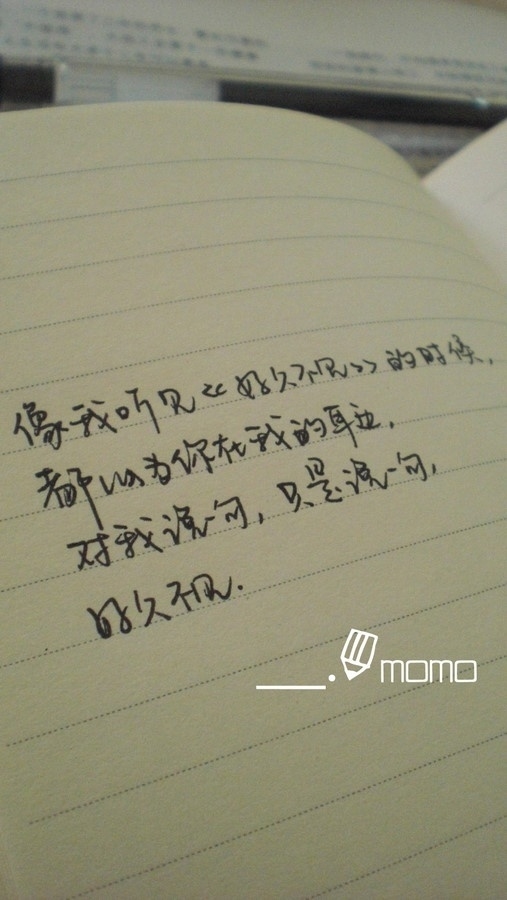 像我听见《好久不见》的时候，
都以为你在我的耳边，
对我说一句，只是说一句，
好久不见.
___.momo